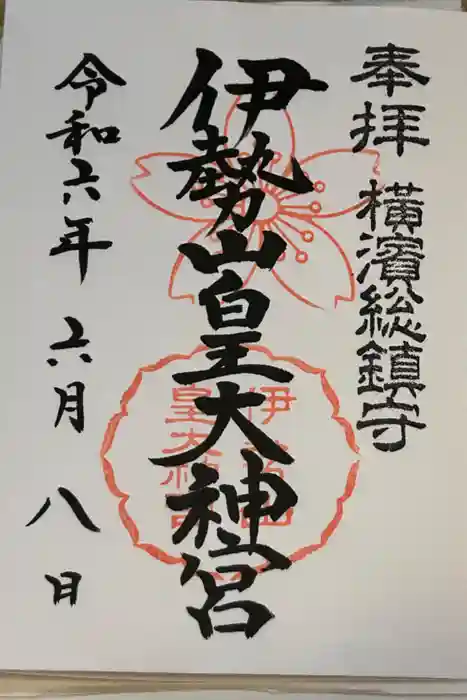 奉拝 横濱総鎮守
伊勢山皇大神宮
令和六年 六月 八日
伊勢山
皇大神宮